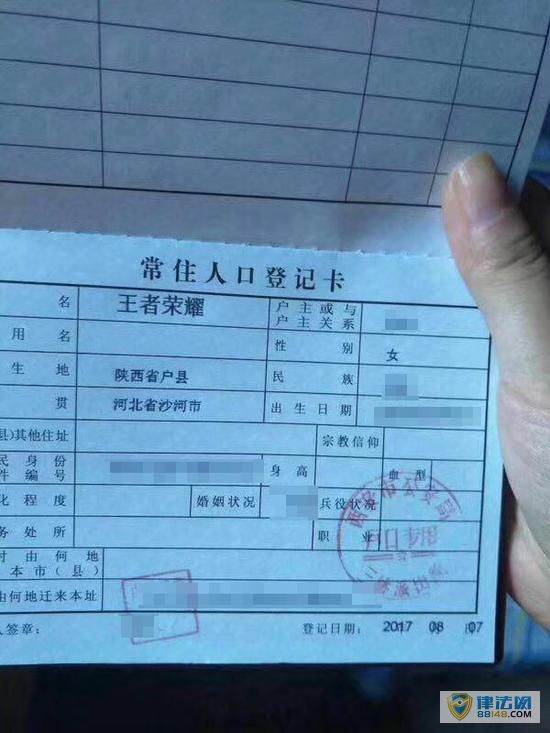 常住人口登记卡
名 王者荣耀 户主或与户主关系
用名 性别 女
生地 陕西省户县 民族
贯 河北省沙河市 出生日期
县)其他住址 宗教信仰
民身份件编号 身高 血型
化程度 婚姻状况 兵役状况
务处所 职业
时由何地
本市(县)
由何地迁来本址
人签章: 登记日期: 2017 08 07
西安市公安局
律法网
88148.COM